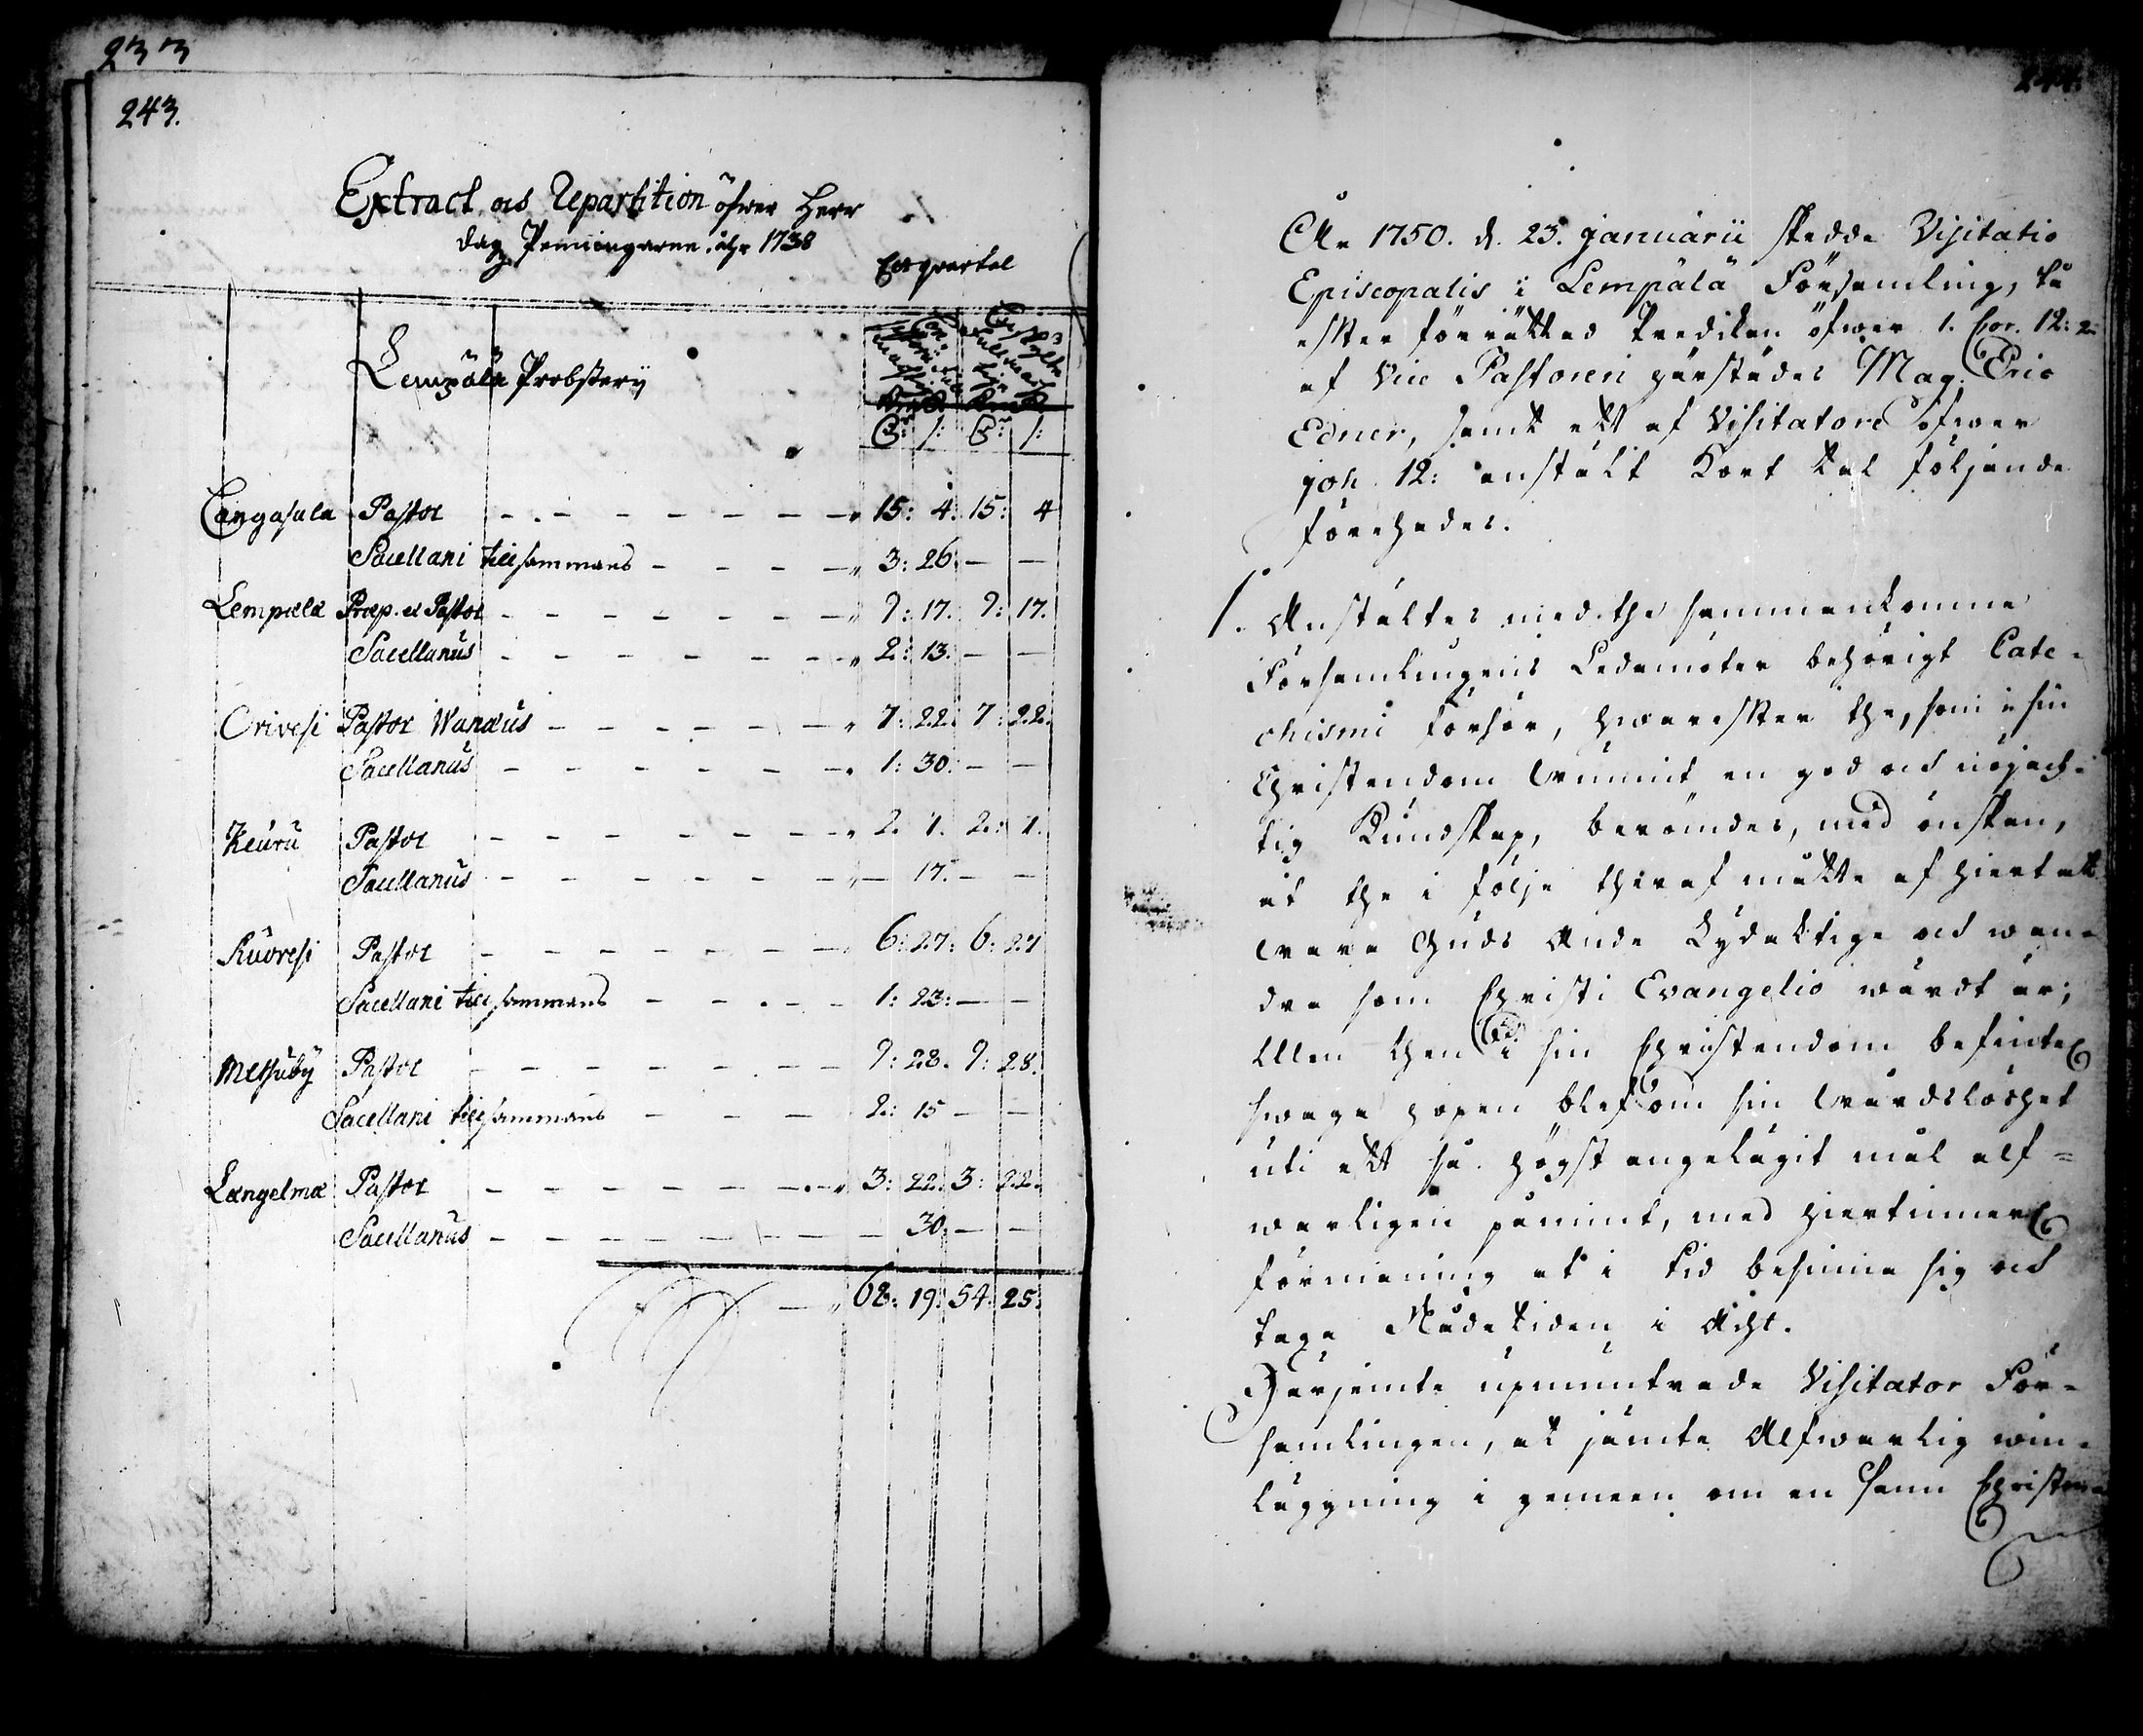 233
243.
Extract och Repartition öfwer Herr
dags Penningarne åhr 1738
Lempälä Probsterij
Cangasala Pastor 15: 4. 15: 4
Sacellani tillsammans 3: 26. — —
Lempælæ Præp. et Pastor 9: 17. 9: 17.
Sacellanus 2: 13. — —
Orivesi Pastor Wanæus 7: 22. 7: 22.
Sacellanus 1: 30. — —
Keuru Pastor 2. 1. 2: 1.
Sacellanus — 17. — —
Ruovesi Pastor 6: 27: 6: 27
Sacellani tillsammans 1: 23: — —
Messuby Pastor 9: 28. 9: 28.
Sacellani tillsammans 2: 15 — —
Længelmæ Pastor 3: 22. 3: 22.
Sacellanus — 30. — —
68: 19. 54: 25.
244.
Åhr 1750. d. 23. Januarii skedde Visitatio
Episcopalis i Lempälä Församling, tå
efter förrättad Predikan öfwer 1. Cor. 12: 2
af Vice Pastoren härstädes Mag. Eric
Edner, samt ett af Visitatore öfwer
Joh. 12: anstält Kort tal följande
förehades.
1. Anstältes med the sammankomne
Församlingens Ledamöter behörigt Cate-
chismi förhör, hwarefter the, som i sin
Christendom wunnit en god och nöjach-
tig Kundskap, berömdes, med önskan,
at the i följe theraf måtte af hiertat
wara Guds Anda Lydaktige och wan-
dra som Christi Evangelio wärdt är;
Men then i sin Christendom befinte
swaga hopen blef om sin wårdslöshet
uti ett så högst angelägit mål alf-
warligen påmint, med hiertinnerl
förmaning at i tid besinna sig och
taga Nådetiden i Acht.
Härjemte upmuntrade Visitator För-
samlingen, at jämte Alfwarlig win-
läggning i gemeen om en sann Christen-